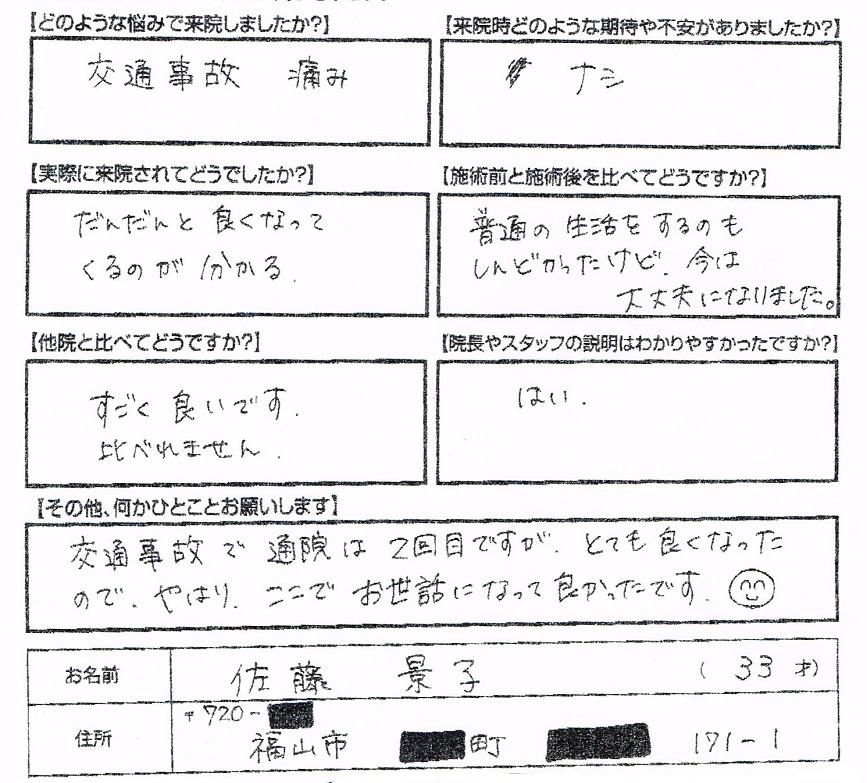 【どのような悩みで来院しましたか?】
交通事故 痛み
【来院時どのような期待や不安がありましたか?】
ナシ
【実際に来院されてどうでしたか?】
だんだんと 良くなって
くるのが 分かる.
【施術前と施術後を比べてどうですか?】
普通の 生活をするのも
しんどかったけど、今は
大丈夫になりました。
【他院と比べてどうですか?】
すごく 良いです.
比べれません.
【院長やスタッフの説明はわかりやすかったですか?】
はい.
【その他、何かひとことお願いします】
交通事故で 通院は 2回目ですが、とても良くなった
ので、やはり、ここで お世話になって良かったです.
お名前 佐藤 景子 (33才)
〒720-
住所 福山市 町 171-1